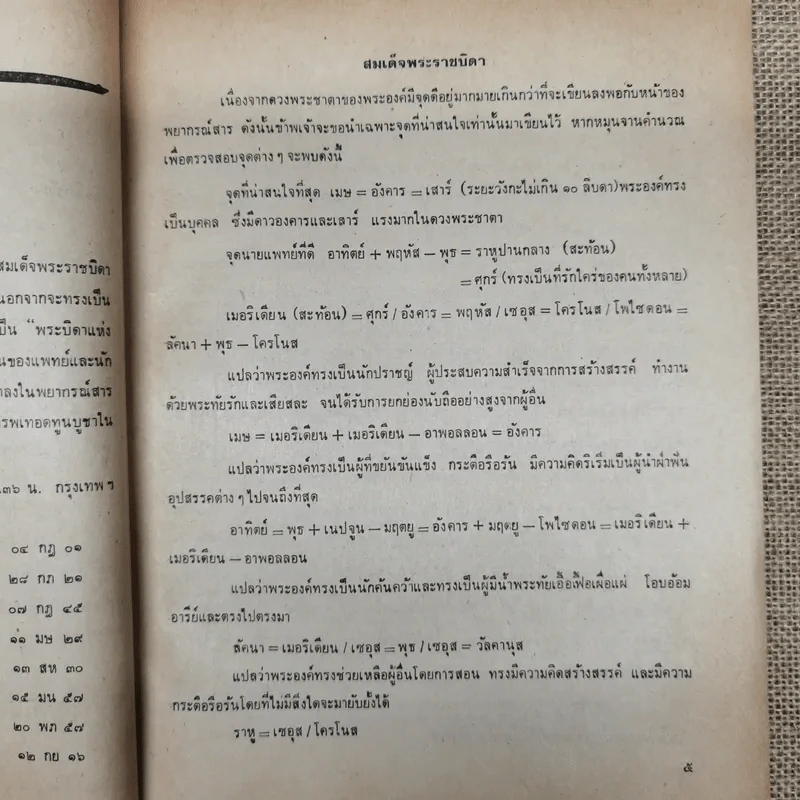 สมเด็จพระราชบิดา
นอกจากจะทรงเป็น
เป็น “พระบิดาแห่ง
นของแพทย์และนัก
าลงในพยากรณ์สาร
รพเทอดทูนบูชาใน
.๓๖ น. กรุงเทพฯ
๐๔ กฎ ๐๑
๒๘ กภ ๒๑
๐๗ กฎ ๔๕
๑๑ มษ ๒๙
๑๓ สห ๓๐
๑๕ มน ๕๗
๒๐ พภ ๕๗
๑๒ กย ๑๖
สมเด็จพระราชบิดา
เนื่องจากดวงพระชาตาของพระองค์มีจุดดีอยู่มากมายเกินกว่าที่จะเขียนลงพอกับหน้าของ
พยากรณ์สาร ดังนั้นข้าพเจ้าจะขอนำเฉพาะจุดที่น่าสนใจเท่านั้นมาเขียนไว้ หากหมุนจานคำนวณ
เพื่อตรวจสอบจุดต่าง ๆ จะพบดังนี้
จุดที่น่าสนใจที่สุด เมษ = อังคาร = เสาร์ (ระยะวังกะไม่เกิน ๑๐ ลิบดา)พระองค์ทรง
เป็นบุคคล ซึ่งมีดาวองคารและเสาร์ แรงมากในดวงพระชาตา
จุดนายแพทย์ที่ดี อาทิตย์ + พฤหัส – พุธ = ราหูปานกลาง (สะท้อน)
= ศุกร์ (ทรงเป็นที่รักใคร่ของคนทั้งหลาย)
เมอริเดียน (สะท้อน) = ศุกร์ / อังคาร = พฤหัส / เซอุส = โครโนส / โพไซดอน =
ลัคนา + พุธ – โครโนส
แปลว่าพระองค์ทรงเป็นนักปราชญ์ ผู้ประสบความสำเร็จจากการสร้างสรรค์ ทำงาน
ด้วยพระทัยรักและเสียสละ จนได้รับการยกย่องนับถืออย่างสูงจากผู้อื่น
เมษ = เมอริเดียน + เมอริเดียน – อาพอลลอน = อังคาร
แปลว่าพระองค์ทรงเป็นผู้ที่ขยันขันแข็ง กระตือรือร้น มีความคิดริเริ่มเป็นผู้นำฝ่าฟัน
อุปสรรคต่าง ๆ ไปจนถึงที่สุด
อาทิตย์ = พุธ + เนปจูน – มฤตยู = อังคาร + มฤตยู – โพไซดอน = เมอริเดียน +
เมอริเดียน – อาพอลลอน
แปลว่าพระองค์ทรงเป็นนักค้นคว้าและทรงเป็นผู้มีน้ำพระทัยเอื้อเฟื้อเผื่อแผ่ โอบอ้อม
อารีย์และตรงไปตรงมา
ลัคนา = เมอริเดียน / เซอุส = พุธ / เซอุส = วัลคานุส
แปลว่าพระองค์ทรงช่วยเหลือผู้อื่นโดยการสอน ทรงมีความคิดสร้างสรรค์ และมีความ
กระตือรือร้นโดยที่ไม่มีสิ่งใดจะมายับยั้งได้
ราหู = เซอุส / โครโนส
๕